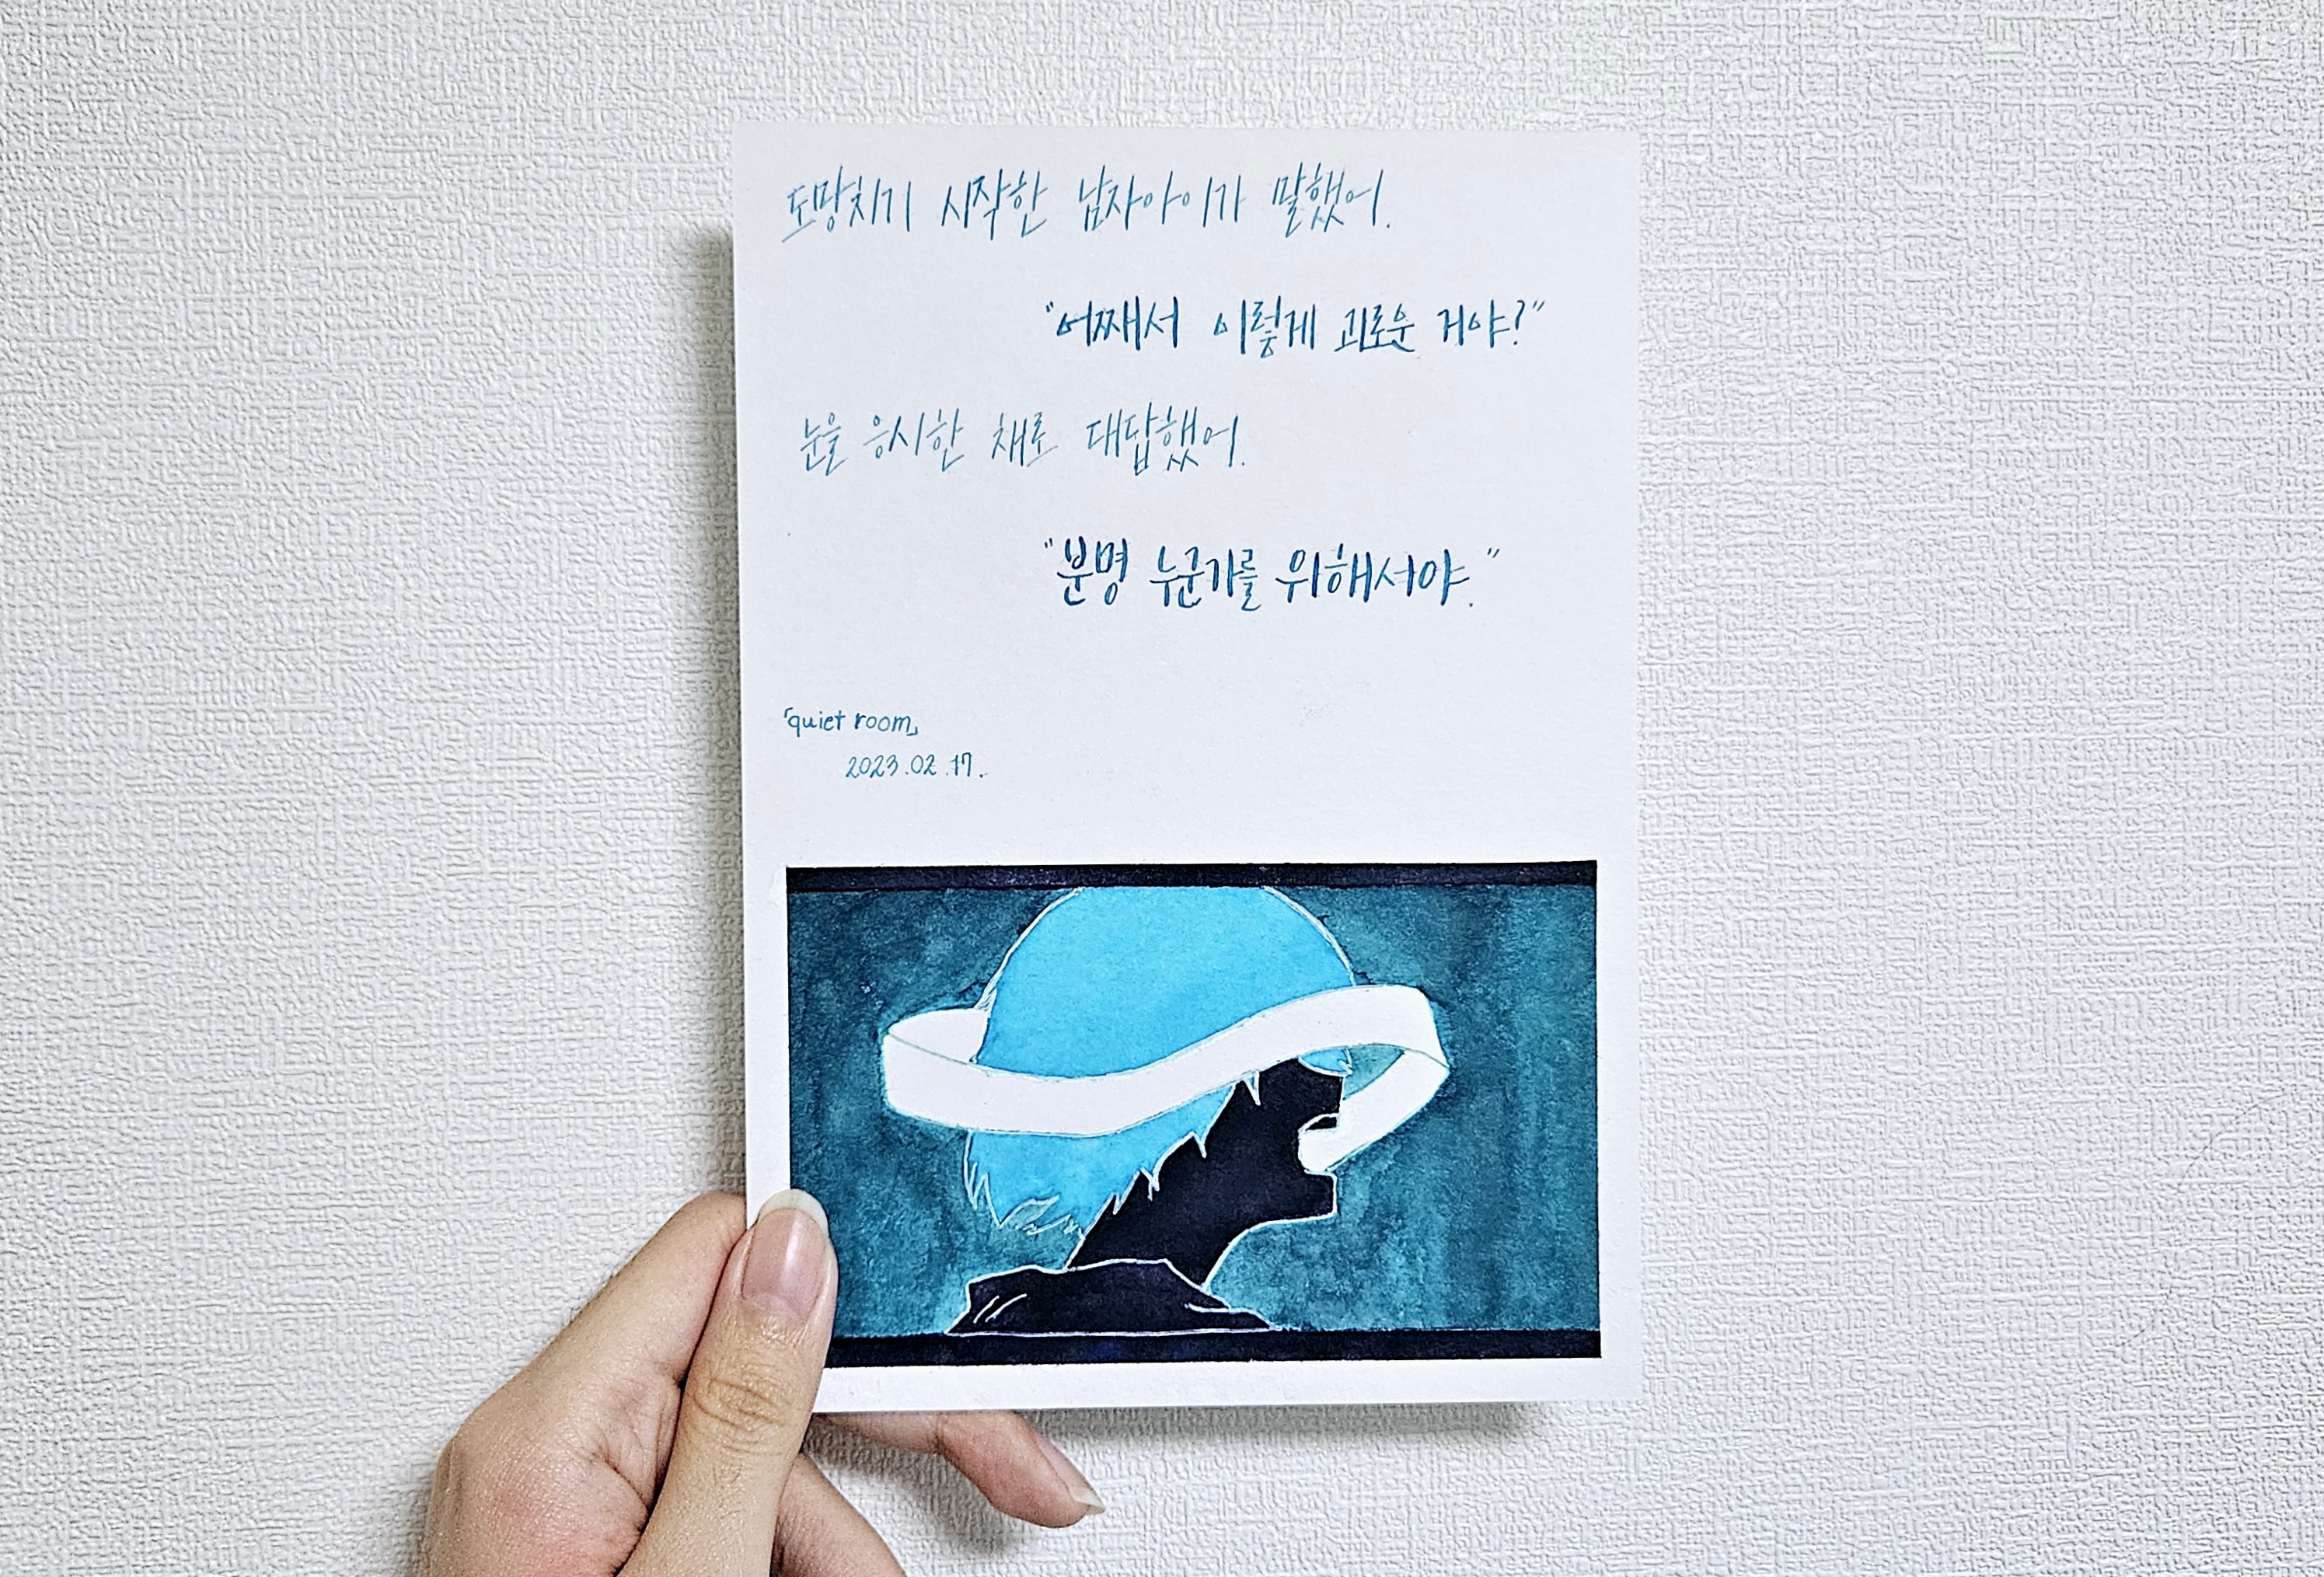 도망치기 시작한 남자아이가 말했어.
"어째서 이렇게 괴로운 거야?"
눈을 응시한 채로 대답했어.
"분명 누군가를 위해서야."
「quiet room」
2023.02.17.